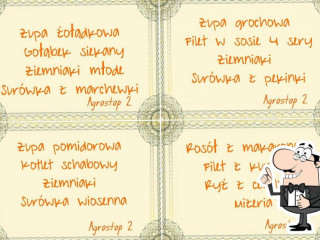 Zupa żołądkowa
Gołąbek siekany
Ziemniaki młode
Surówka z marchewki
Agrostop 2
Zupa grochowa
Filet w sosie 4 sery
Ziemniaki
Surówka z pekinki
Agrostop 2
Zupa pomidorowa
Kotlet schabowy
Ziemniaki
Surówka wiosenna
Agrostop 2
Rosół z
Filet z
Ryż z
Mizeria